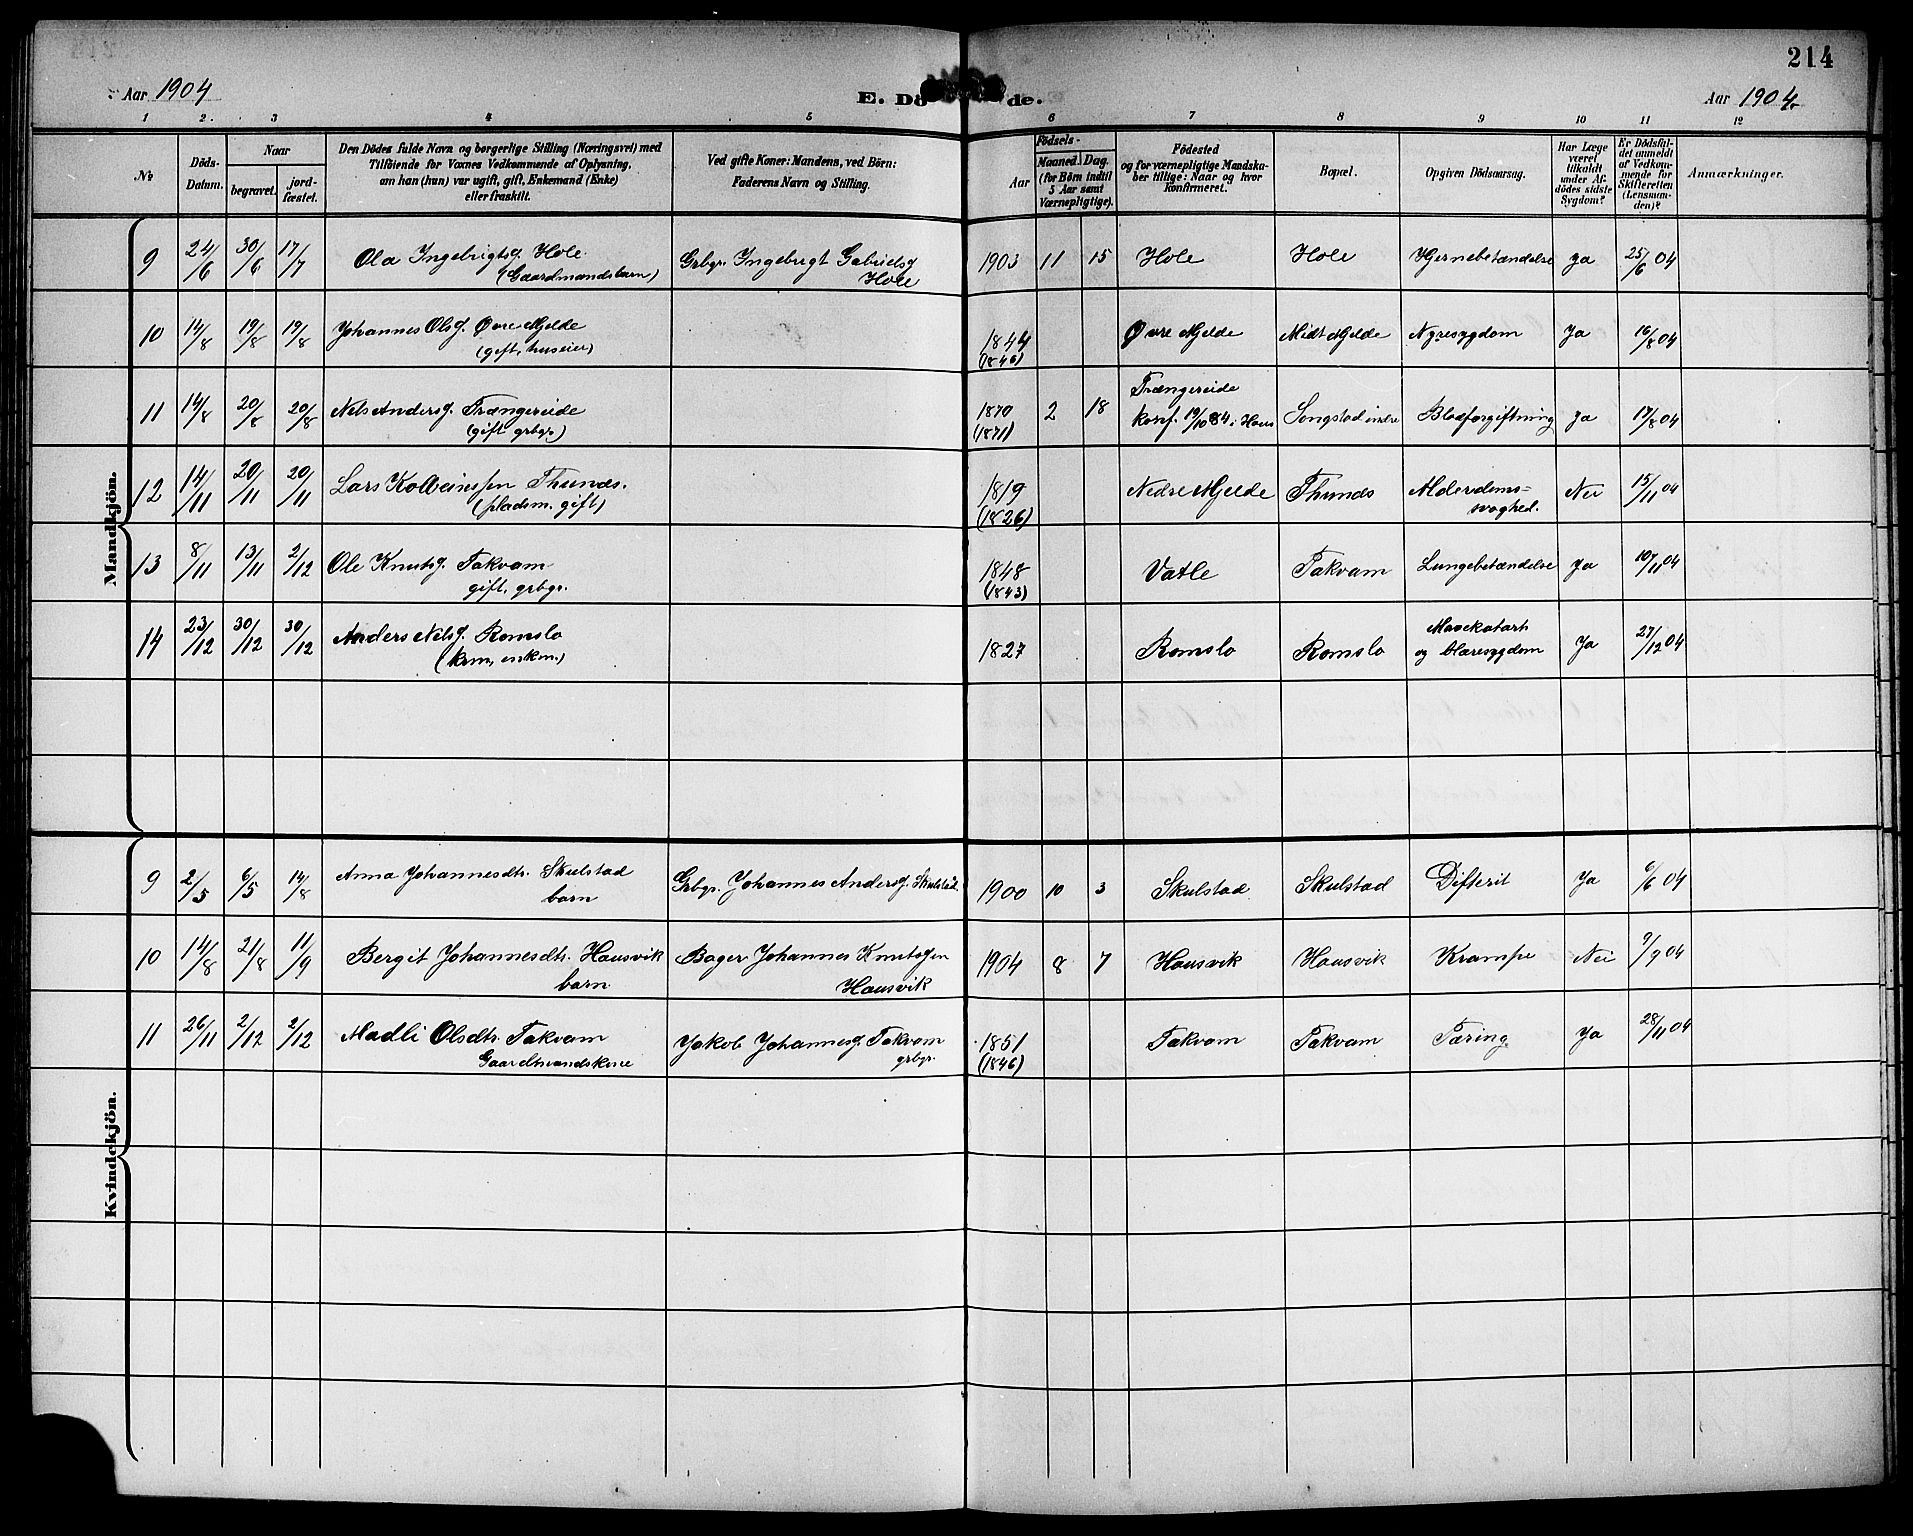 214
Aar 1904
E. Dö de.
Aar 1904
1 2. 3 4 5 6 7 8 9 10 11 12
No
Döds-Datum.
Naar
begravet.
jord-fæstet.
Den Dödes fulde Navn og borgerlige Stilling (Næringsvei) med
Tilföiende for Voxnes Vedkommende af Oplysning,
om han (hun) var ugift, gift, Enkemand (Enke)
eller fraskilt.
Ved gifte Koner: Mandens, ved Börn:
Faderens Navn og Stilling.
Aar
Födsels-
Maaned. Dag.
(for Börn indtil
5 Aar samt
Værnepligtige).
Födested
og for værnepligtige Mandska-
ber tillige: Naar og hvor
Konfirmeret.
Bopæl.
Opgiven Dödsaarsag.
Har Læge
været
tilkaldt
under Af-
dödes sidste
Sygdom?
Er Dödsfal-
det anmeldt
af Vedkom-
mende for
Skifteretten
(Lensman-
den)?
Anmærkninger.
Mandkjön.
9 24/6 30/6 17/7 Ola Ingebrigtsg. Hole. Grbgr. Ingebrigt Gabrielsg 1903 11 15 Hole Hole Hjernebetændelse ja 25/6 04
(Gaardmandsbarn) Hole
10 14/8 19/8 19/8 Johannes Olsg. Øvre Mjelde 1844 Øvre Mjelde Midt Mjelde Nyresygdom Ja 16/8 04
(gift, huseier) (1846)
11 14/8 20/8 20/8 Nels Andersg. Trængereide 1870 2 18 Trængereide Songstad indre Blodforgiftning ja 17/8 04
(gift grbgr.) (1871) konf. 19/10 84 i Haus
12 14/11 20/11 20/11 Lars Kolbeinssen Thunds. 1819 Nedre Mjelde Thunds Alderdoms= Nei 15/11 04
(pladsm. gift) (1826) svaghed.
13 8/11 13/11 2/12 Ole Knutsg. Takvam 1848 Vatle Takvam Lungebetændelse Ja 10/11 04
gift, grbgr. (1843)
14 23/12 30/12 30/12 Anders Nelsg. Romslo 1827 Romslo Romslo Mavekatarh Ja 27/12 04
(krm, enkm.) og blæresygdom
Kvindekjön.
9 2/5 6/5 14/8 Anna Johannesdtr. Skulstad Grbgr. Johannes Andersg. Skulstad 1900 10 3 Skulstad Skulstad Difterit Ja 6/6 04
barn
10 14/8 21/8 11/9 Bergit Johannesdtr. Hausvik Bager Johannes Knutsgen 1904 8 7 Hausvik Hausvik Krampe Nei 9/9 04
barn Hausvik
11 26/11 2/12 2/12 Madli Olsdtr. Takvam Jakob Johannesg. Takvam 1851 Takvam Takvam Tæring Ja 28/11 04
Gaardmandskone grbgr. (1846)